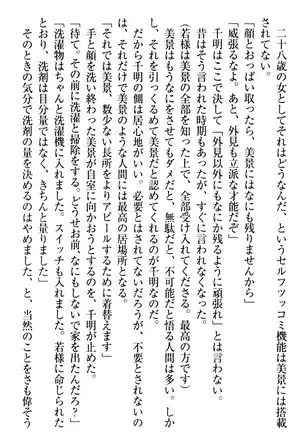 二十八歳の女としてそれはどうなんだ、というセルフツッコミ機能は美景には搭載
されてない。
「顔とおっぱい取ったら、美景にはなにも残りませんから」
「威張るなよ。あと、外見も立派な才能だぞ」
千明はここで決して「外見以外にもなにか残るように頑張れ」とは言わない。
昔はそう言われた時期もあったが、すぐに言われなくなった。
(若様は美景の全部を知った上で、全部受け入れてくださる。最高の方です)
美景はもうなにをさせてもダメだと、無駄だと、不可能だと悟る人間は多い。しか
し、それを引っくるめて美景だと認めてくれるのが千明なのだ。
だから千明の側は居心地がいい。必要とはされてないだろうが、不要とされないの
は、それだけで美景のような人間には最高の居場所となる。
「それでは美景、数少ない長所をよりアピールするために着替えます」
手と顔を洗い終わった美景が自室に向かおうとするのを、千明が止めた。
「待て。その前に洗濯と掃除をする。どうせお前、なにもしないで家を出たんだろ?」
「洗濯物はちゃんと洗濯機に入れました。スイッチも入れました。若様に命じられた
とおり、洗剤は目分量ではなく、きちんと量りました」
そのときの気分で洗剤の量を決めるのはやめました、と、当然のことをさも偉そう